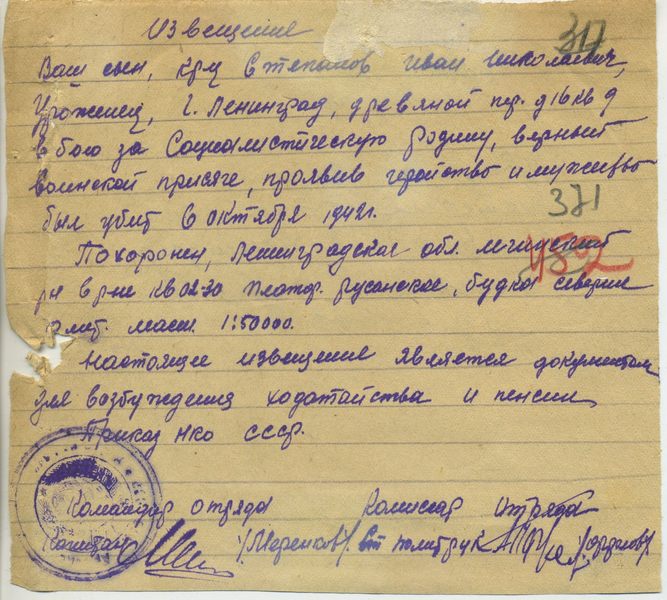 Извещение
317
Ваш сын, крц Степанов Иван Николаевич,
Уроженец, г. Ленинград, древяной пер. д 16 кв 9
в бою за Социалистическую родину, верный
воинской присяге, проявив геройство и мужество
был убит 6 октября 1942г.
371
Похоронен, Ленинградское обл. мгинский
482
рн в рне кв 02-30 платф. русановское, будка севернее
мет. масш. 1:50000.
настоящее извещение является документом
для возбуждения ходатайства и пенсии
Приказ НКО СССР.
Командир отряда Комиссар отряда
Капитан /Меренков/ Ст политрук